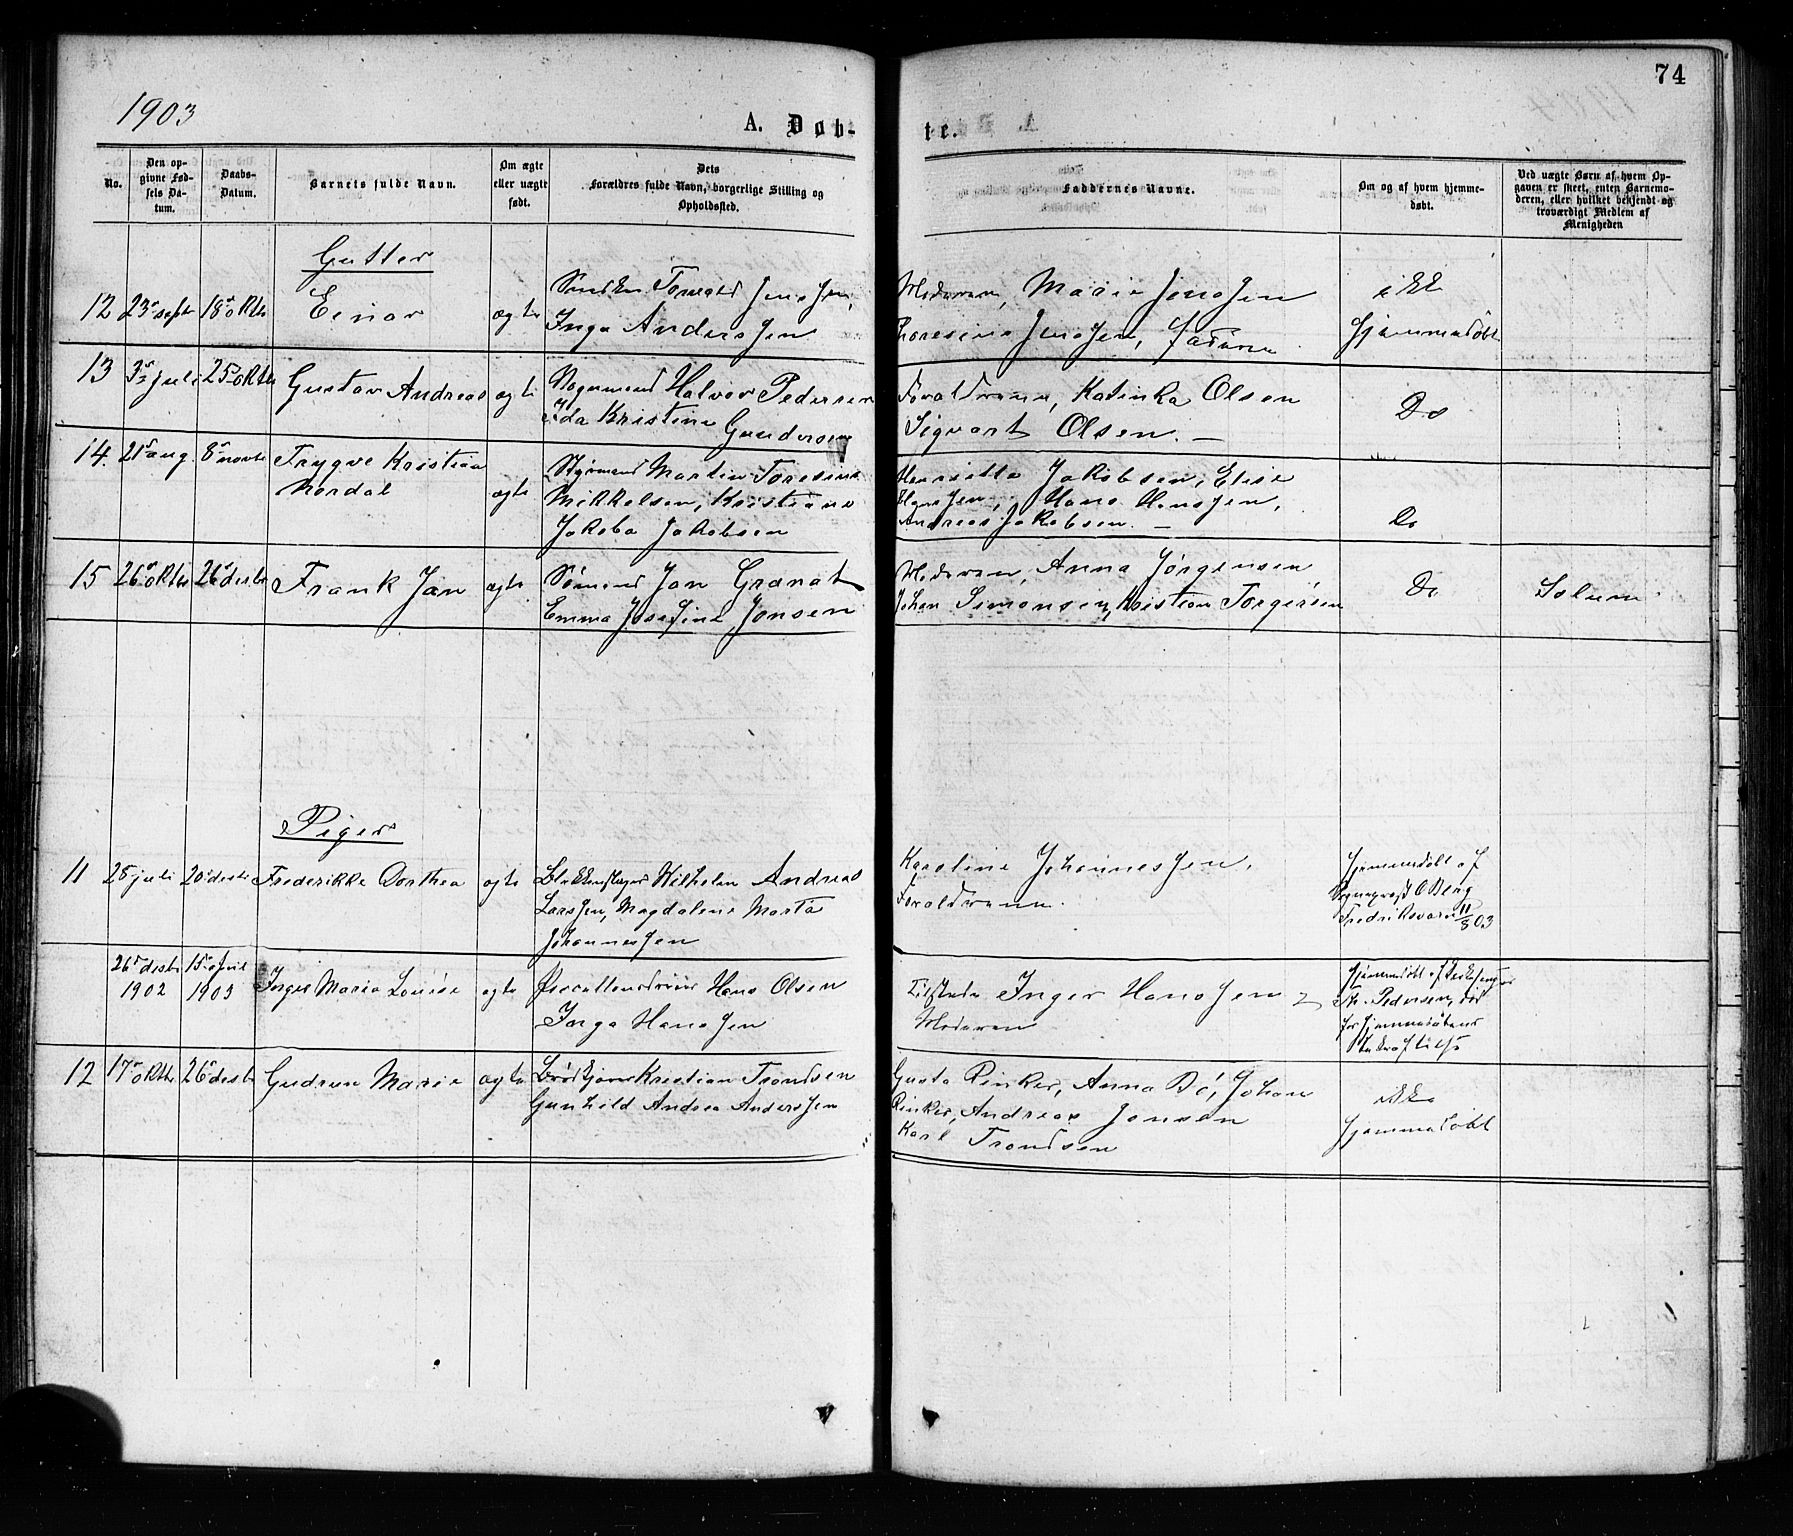 74
1903
A. Døb-
te.
No.
Den op-
givne Fød-
sels Da-
tum.
Daabs-
Datum.
Barnets fulde Navn.
Om ægte
eller uægte
født.
Dets
Forældres fulde Navn, borgerlige Stilling og
Opholdssted.
Faddernes Navne.
Om og af hvem hjemme-
døbt.
Ved uægte Børn af hvem Op-
gaven er skeet, enten Barnemo-
deren, eller hvilket bekjendt og
troværdigt Medlem af
Menigheden
Gutter
12 23 septr 18 oktr Einar ægte Jensen,
Inga Anderssen
Moderen, Marie Jenssen
Jenssen, Faderen
ikke
hjemmedøbt
13 3 juli 25 oktr Gustav Andreas ægte Halvor Pedersen
Ida Kristine Gundersen
Forældrene, Katinka Olsen
Sigvart Olsen. —
Do
14. 21 aug. 8 novbr Trygve Kristian
Nordal
ægte Styrmand Martin
Mikkelsen, Kristiane
Jakoba Jakobsen
Henriette Jakobsen, Elise
Hanssen, Hans Hanssen,
Andreas Jakobsen. —
Do
15 26 oktr 26 desbr Frank Jan ægte Sømand Jan Granat
Emma Josefine Jonsen
Moderen, Anna Jørgensen
Johan Simonsen, Kristian Torgersen
Do Solum
Piger
11 25 juli 20 desbr Frederikke Dorthea ægte Blikkenslager Wilhelm Andreas
Larssen, Magdalene Marta
Johannessen
Karoline Johannessen,
Forældrene.
Hjemmedøbt af
Sogneprest O Berg
Fredriksværn 11/8 03
26 desbr
1902
15 april
1903
Inger Marie Louise ægte Hans Olsen
Inga Hanssen
Inger Hanssen
Moderen
Hjemmedøbt af
Pedersen, død
før hjemmedøbens
12 17 oktr 26 desbr Gudrun Marie ægte Kristian Trondsen
Gunhild Andrea Anderssen
Gusta Rinker, Anna Do, Johan
Rinker, Andreas Jensen
Karl Trondsen
ikke
hjemmedøbt